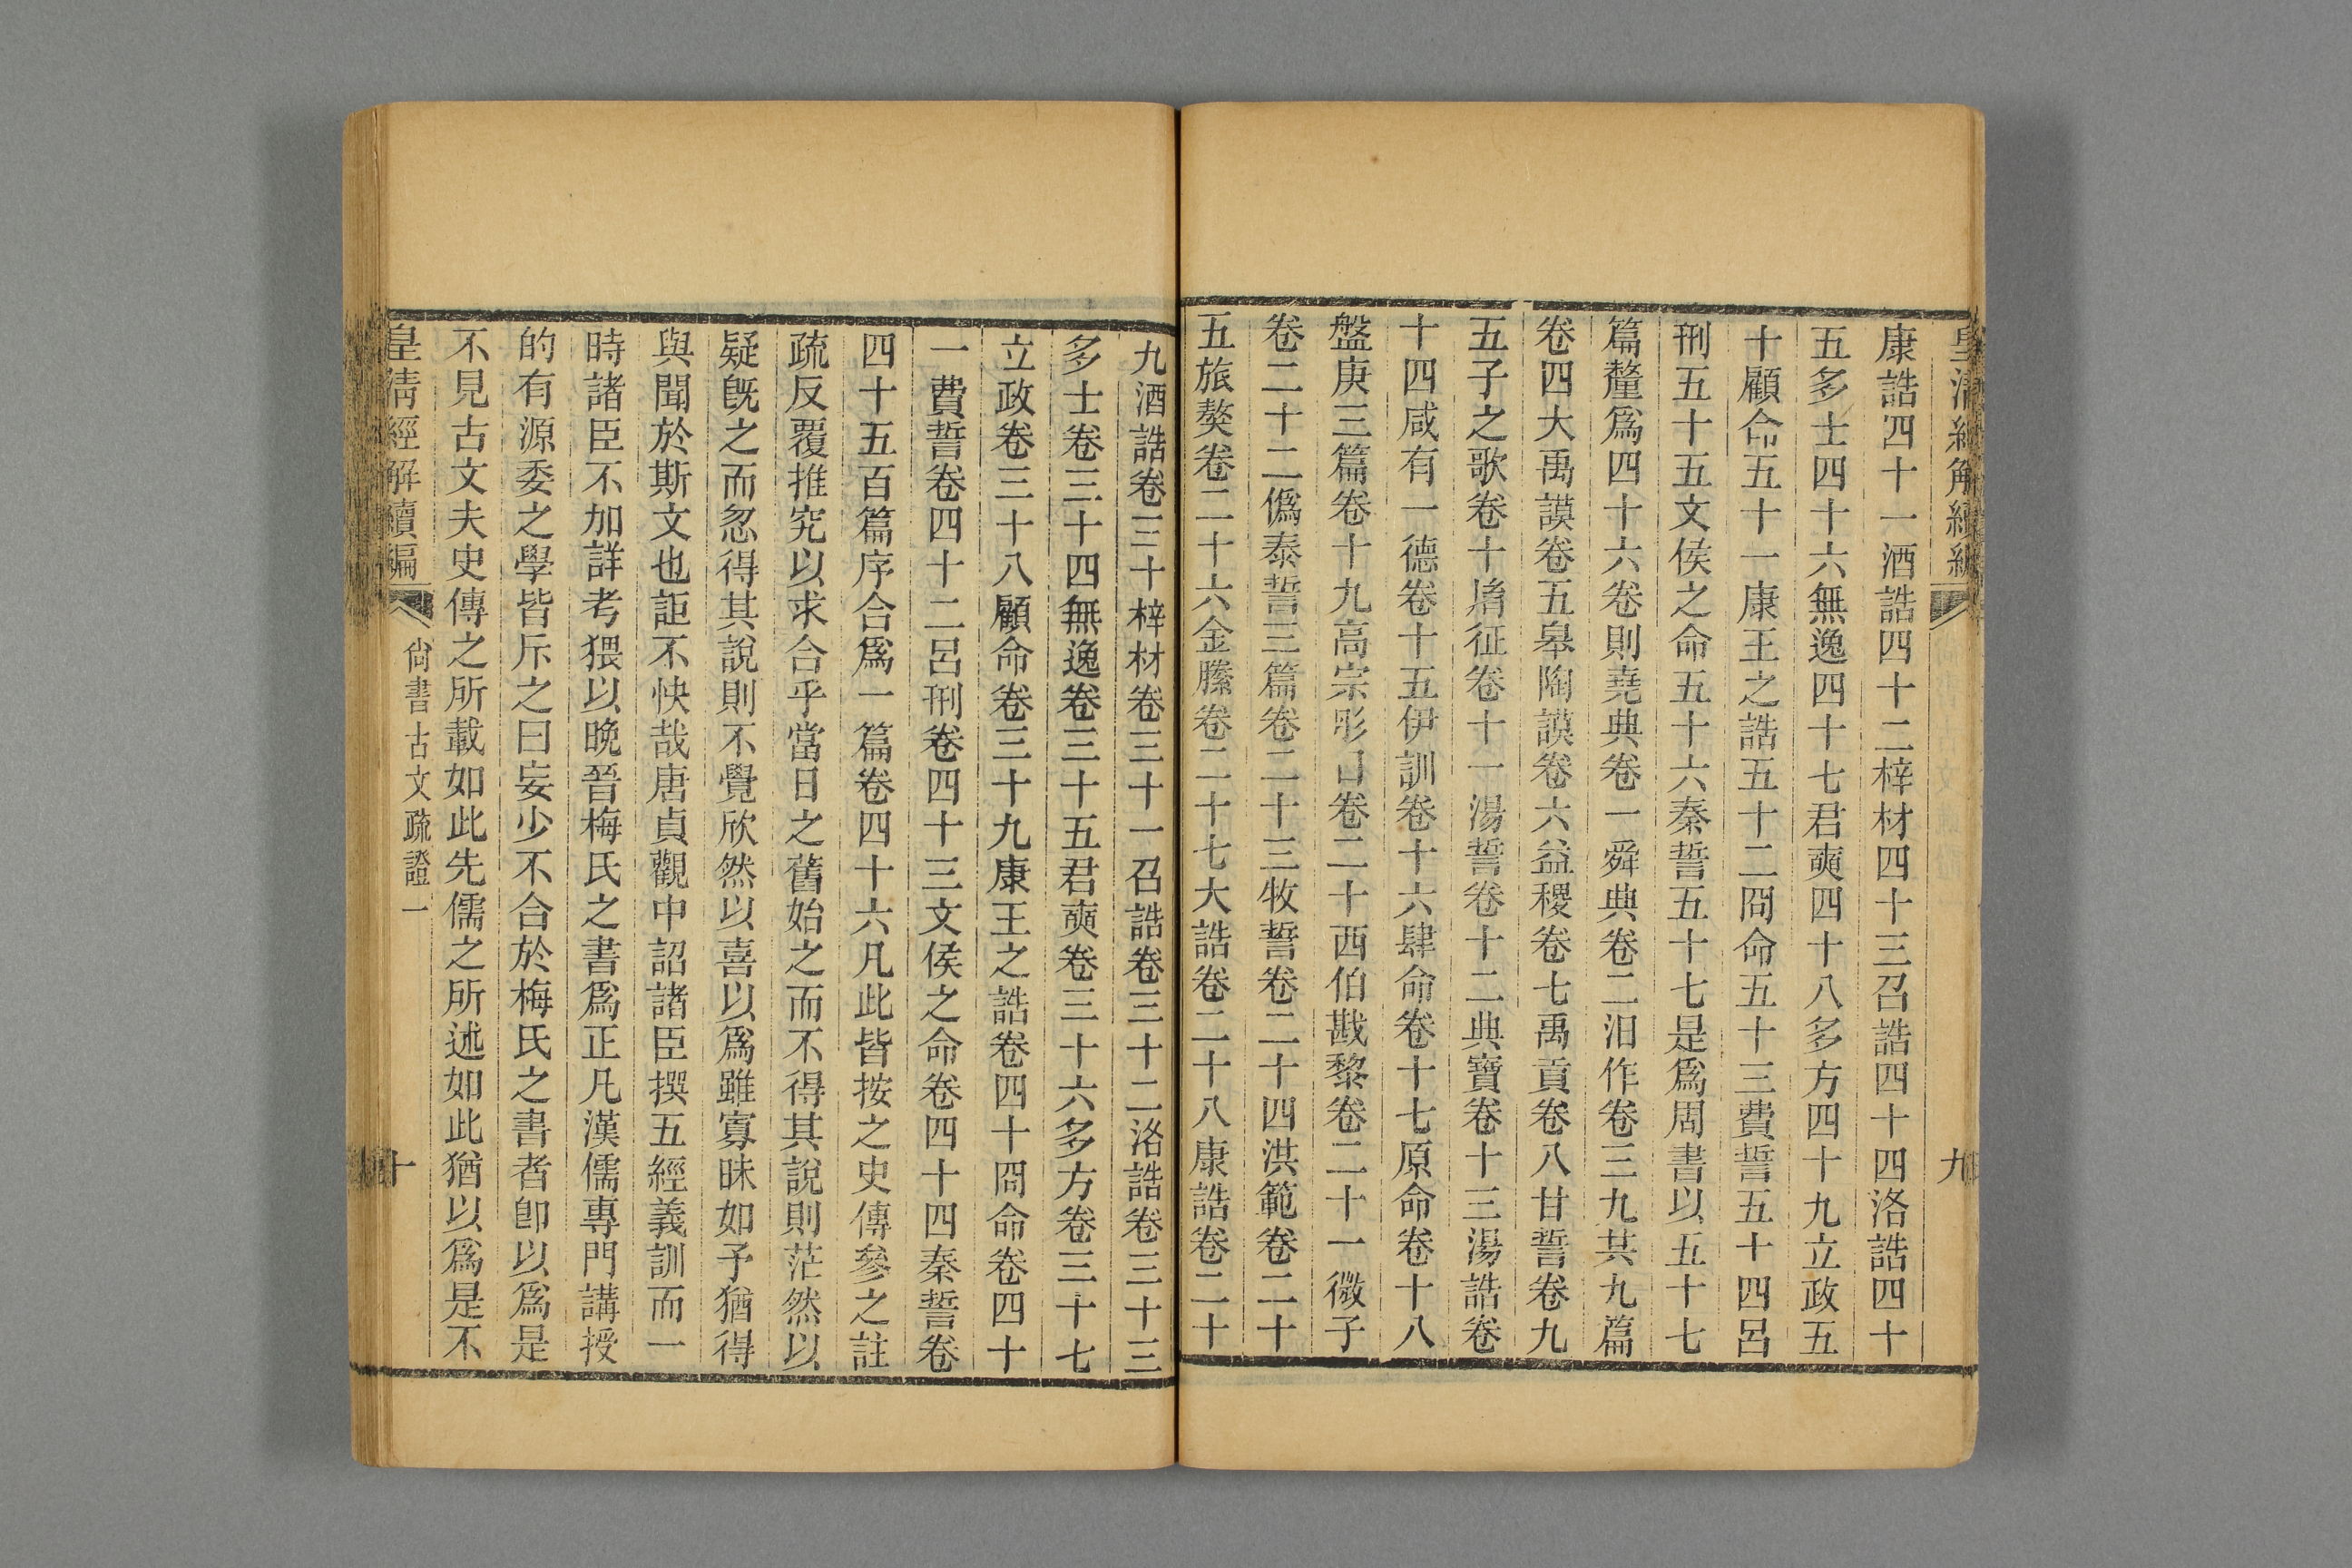 皇清經解續編
九
康誥四十一酒誥四十二梓材四十三召誥四十四洛誥四十
五多士四十六無逸四十七君奭四十八多方四十九立政五
十顧命五十一康王之誥五十二冏命五十三費誓五十四呂
刑五十五文侯之命五十六秦誓五十七是爲周書以五十七
篇釐爲四十六卷則堯典卷一舜典卷二汨作卷三九共九篇
卷四大禹謨卷五臯陶謨卷六益稷卷七禹貢卷八甘誓卷九
五子之歌卷十胤征卷十一湯誓卷十二典寶卷十三湯誥卷
十四咸有一德卷十五伊訓卷十六肆命卷十七原命卷十八
盤庚三篇卷十九高宗肜日卷二十西伯戡黎卷二十一微子
卷二十二僞泰誓三篇卷二十三牧誓卷二十四洪範卷二十
五旅獒卷二十六金縢卷二十七大誥卷二十八康誥卷二十
九酒誥卷三十梓材卷三十一召誥卷三十二洛誥卷三十三
多士卷三十四無逸卷三十五君奭卷三十六多方卷三十七
立政卷三十八顧命卷三十九康王之誥卷四十冏命卷四十
一費誓卷四十二呂刑卷四十三文侯之命卷四十四秦誓卷
四十五百篇序合爲一篇卷四十六凡此皆按之史傳參之註
疏反覆推究以求合乎當日之舊始之而不得其說則茫然以
疑旣之而忽得其說則不覺欣然以喜以爲雖寡昧如予猶得
與聞於斯文也詎不快哉唐貞觀中詔諸臣撰五經義訓而一
時諸臣不加詳考猥以晚晉梅氏之書爲正凡漢儒專門講授
的有源委之學皆斥之曰妄少不合於梅氏之書者卽以爲是
不見古文夫史傳之所載如此先儒之所述如此猶以爲是不
皇清經解續編
尙書古文疏證一
十